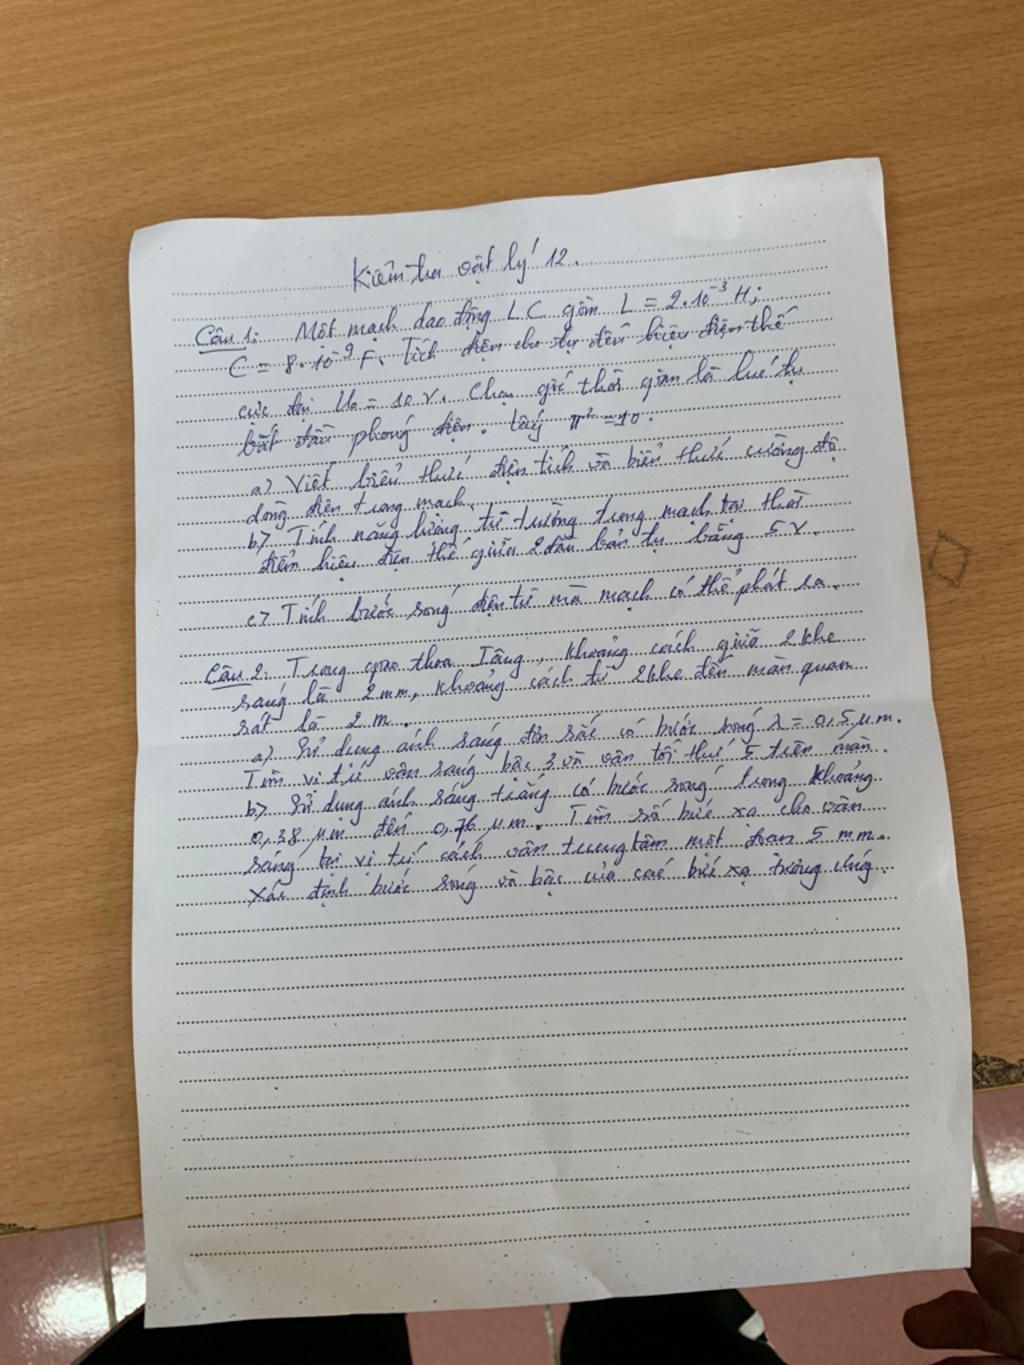 Kiểm tra vật lý 12.
Câu 1: Một mạch dao động LC gồm L = 2.10⁻³ H;
C = 8.10⁻⁹ F. Tích điện cho tụ đến hiệu điện thế
cực đại U₀ = 10 V. Chọn gốc thời gian là lúc tụ
bắt đầu phóng điện. Lấy π² = 10.
a) Viết biểu thức điện tích và biểu thức cường độ
dòng điện trong mạch.
b) Tính năng lượng từ trường trong mạch tại thời
điểm hiệu điện thế giữa 2 đầu bản tụ bằng 5 V.
c) Tính bước sóng điện từ mà mạch có thể phát ra.
Câu 2: Trong giao thoa Iâng, khoảng cách giữa 2 khe
sáng là 2 mm, khoảng cách từ 2 khe đến màn quan
sát là 2 m.
a) Sử dụng ánh sáng đơn sắc có bước sóng λ = 0,5 μm.
Tìm vị trí vân sáng bậc 3 và vân tối thứ 5 trên màn.
b) Sử dụng ánh sáng trắng có bước sóng trong khoảng
0,38 μm đến 0,76 μm. Tìm số bức xạ cho vân
sáng tại vị trí cách vân trung tâm một đoạn 5 mm.
Xác định bước sóng và bậc của các bức xạ tương ứng.